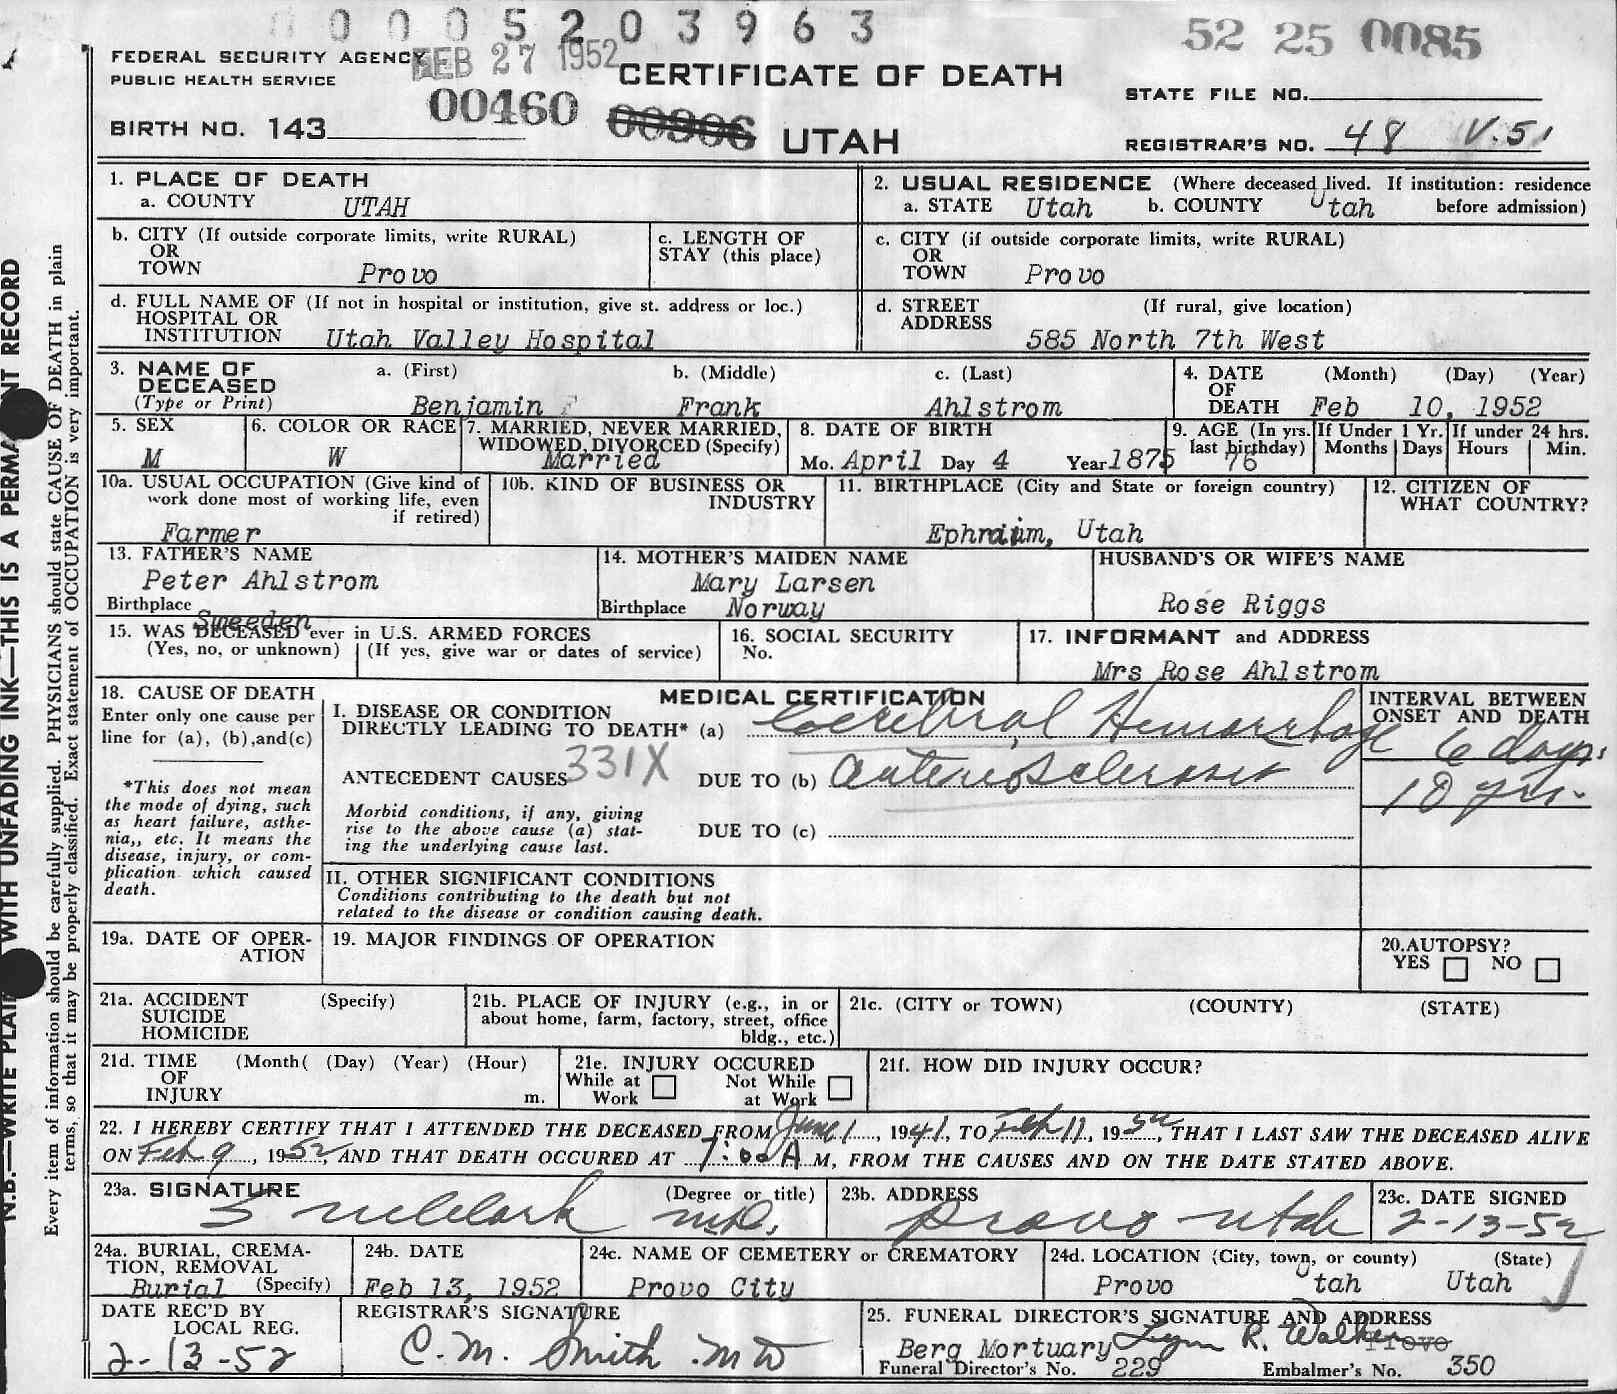 0 0 0 5 2 0 3 9 6 3
52 25 0085
FEDERAL SECURITY AGENCY
PUBLIC HEALTH SERVICE
FEB 27 1952
CERTIFICATE OF DEATH
STATE FILE NO.
BIRTH NO. 143
00460 00906 UTAH
REGISTRAR'S NO. 48 V.51
1. PLACE OF DEATH
a. COUNTY UTAH
2. USUAL RESIDENCE (Where deceased lived. If institution: residence before admission)
a. STATE Utah b. COUNTY Utah
b. CITY (If outside corporate limits, write RURAL)
OR
TOWN Provo
c. LENGTH OF
STAY (this place)
c. CITY (if outside corporate limits, write RURAL)
OR
TOWN Provo
d. FULL NAME OF (If not in hospital or institution, give st. address or loc.)
HOSPITAL OR
INSTITUTION Utah Valley Hospital
d. STREET (If rural, give location)
ADDRESS
585 North 7th West
3. NAME OF
DECEASED
(Type or Print)
a. (First) b. (Middle) c. (Last)
Benjamin F Frank Ahlstrom
4. DATE (Month) (Day) (Year)
OF
DEATH Feb 10, 1952
5. SEX
M
6. COLOR OR RACE
W
7. MARRIED, NEVER MARRIED,
WIDOWED, DIVORCED (Specify)
Married
8. DATE OF BIRTH
Mo. April Day 4 Year 1875
9. AGE (In yrs.
last birthday)
76
If Under 1 Yr.
Months Days
If under 24 hrs.
Hours Min.
10a. USUAL OCCUPATION (Give kind of
work done most of working life, even
if retired)
Farmer
10b. KIND OF BUSINESS OR
INDUSTRY
11. BIRTHPLACE (City and State or foreign country)
Ephraim, Utah
12. CITIZEN OF
WHAT COUNTRY?
13. FATHER'S NAME
Peter Ahlstrom
Birthplace Sweeden
14. MOTHER'S MAIDEN NAME
Mary Larsen
Birthplace Norway
HUSBAND'S OR WIFE'S NAME
Rose Riggs
15. WAS DECEASED ever in U.S. ARMED FORCES
(Yes, no, or unknown) (If yes, give war or dates of service)
16. SOCIAL SECURITY
No.
17. INFORMANT and ADDRESS
Mrs Rose Ahlstrom
18. CAUSE OF DEATH
Enter only one cause per
line for (a), (b),and(c)
*This does not mean
the mode of dying, such
as heart failure, asthe-
nia,, etc. It means the
disease, injury, or com-
plication which caused
death.
MEDICAL CERTIFICATION
I. DISEASE OR CONDITION
DIRECTLY LEADING TO DEATH* (a) Cerebral Hemorrhage
ANTECEDENT CAUSES 331X DUE TO (b) arteriosclerosis
Morbid conditions, if any, giving
rise to the above cause (a) stat-
ing the underlying cause last.
DUE TO (c)
INTERVAL BETWEEN
ONSET AND DEATH
6 days
10 yrs.
II. OTHER SIGNIFICANT CONDITIONS
Conditions contributing to the death but not
related to the disease or condition causing death.
19a. DATE OF OPER-
ATION
19. MAJOR FINDINGS OF OPERATION
20.AUTOPSY?
YES NO
21a. ACCIDENT (Specify)
SUICIDE
HOMICIDE
21b. PLACE OF INJURY (e.g., in or
about home, farm, factory, street, office
bldg., etc.)
21c. (CITY or TOWN) (COUNTY) (STATE)
21d. TIME (Month( (Day) (Year) (Hour)
OF
INJURY m.
21e. INJURY OCCURED
While at Work Not While at Work
21f. HOW DID INJURY OCCUR?
22. I HEREBY CERTIFY THAT I ATTENDED THE DECEASED FROM June 1, 1941, TO Feb 11, 1952, THAT I LAST SAW THE DECEASED ALIVE
ON Feb 9, 1952, AND THAT DEATH OCCURED AT 7:00 A M, FROM THE CAUSES AND ON THE DATE STATED ABOVE.
23a. SIGNATURE (Degree or title)
Clark M.D.
23b. ADDRESS
Provo Utah
23c. DATE SIGNED
2-13-52
24a. BURIAL, CREMA-
TION, REMOVAL
Burial (Specify)
24b. DATE
Feb 13, 1952
24c. NAME OF CEMETERY or CREMATORY
Provo City
24d. LOCATION (City, town, or county) (State)
Provo Utah Utah
DATE REC'D BY
LOCAL REG.
2-13-52
REGISTRAR'S SIGNATURE
C. M. Smith MD
25. FUNERAL DIRECTOR'S SIGNATURE AND ADDRESS
Berg Mortuary Lynn R. Walker Provo
Funeral Director's No. 229 Embalmer's No. 350
Every item of information should be carefully supplied. PHYSICIANS should state CAUSE OF DEATH in plain
terms, so that it may be properly classified. Exact statement of OCCUPATION is very important.
N.B.—WRITE PLAI WITH UNFADING INK—THIS IS A PERMA NT RECORD